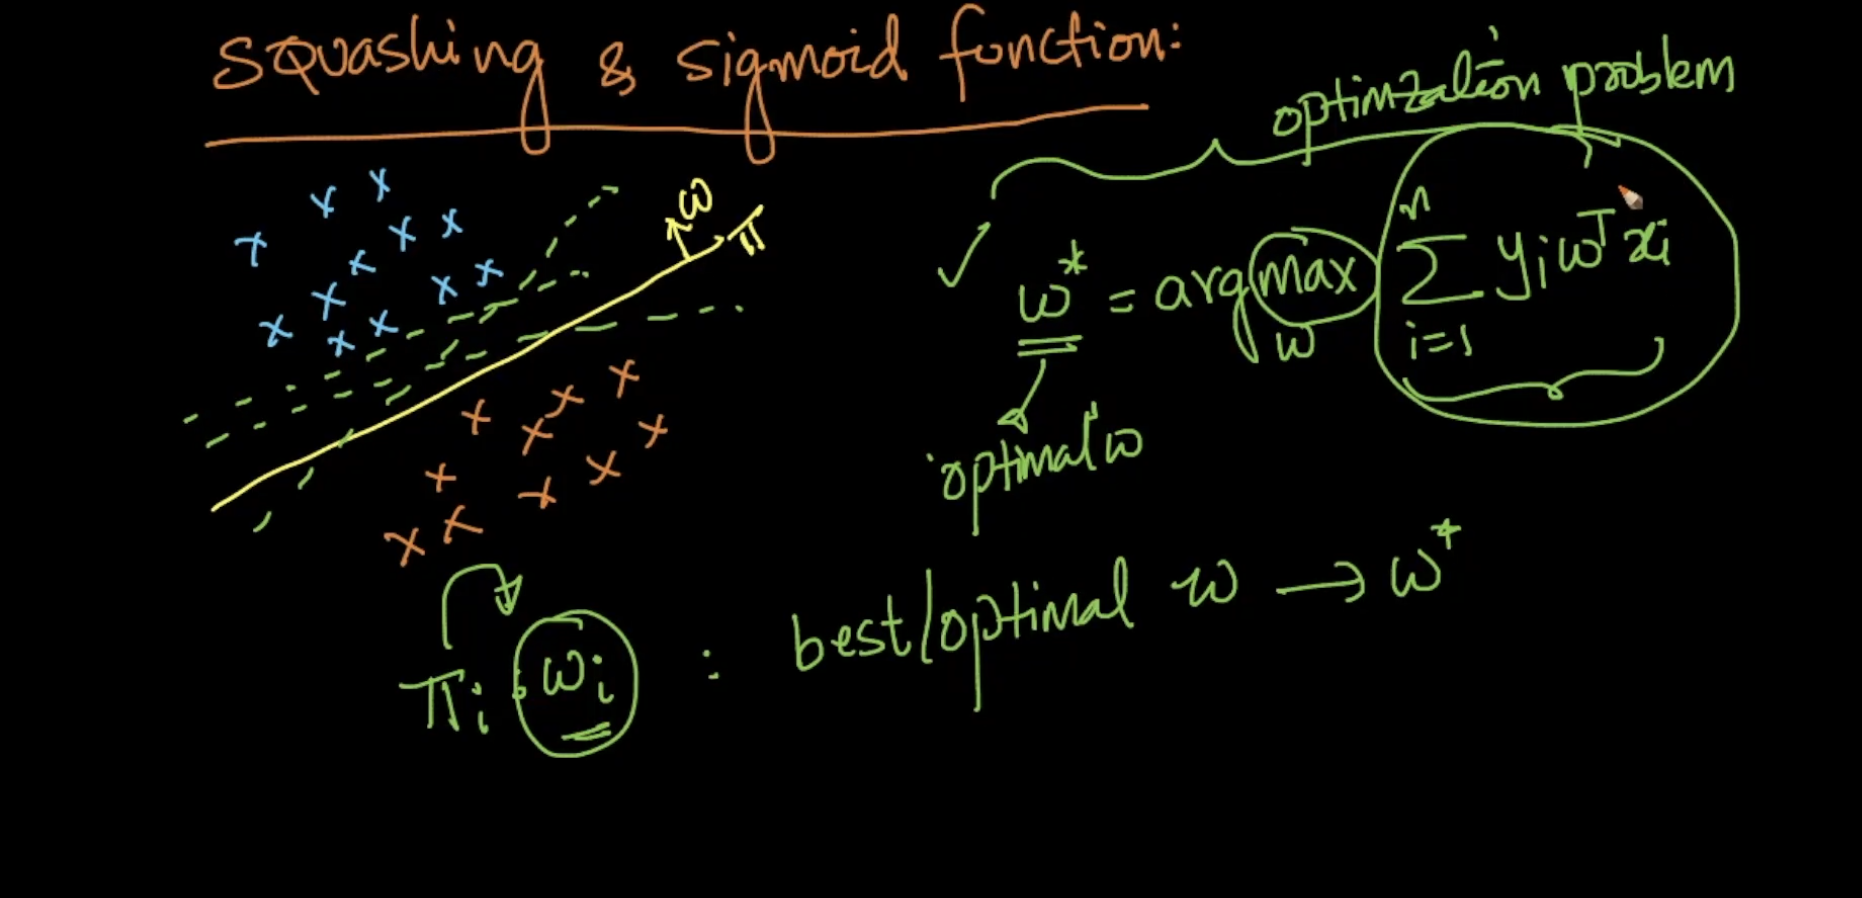 Squashing & sigmoid function:
optimization problem
ω π
ω* = argmax_ω Σ_{i=1}^{n} y_i ω^T x_i
optimal ω
π_i : ω_i : best/optimal ω → ω*